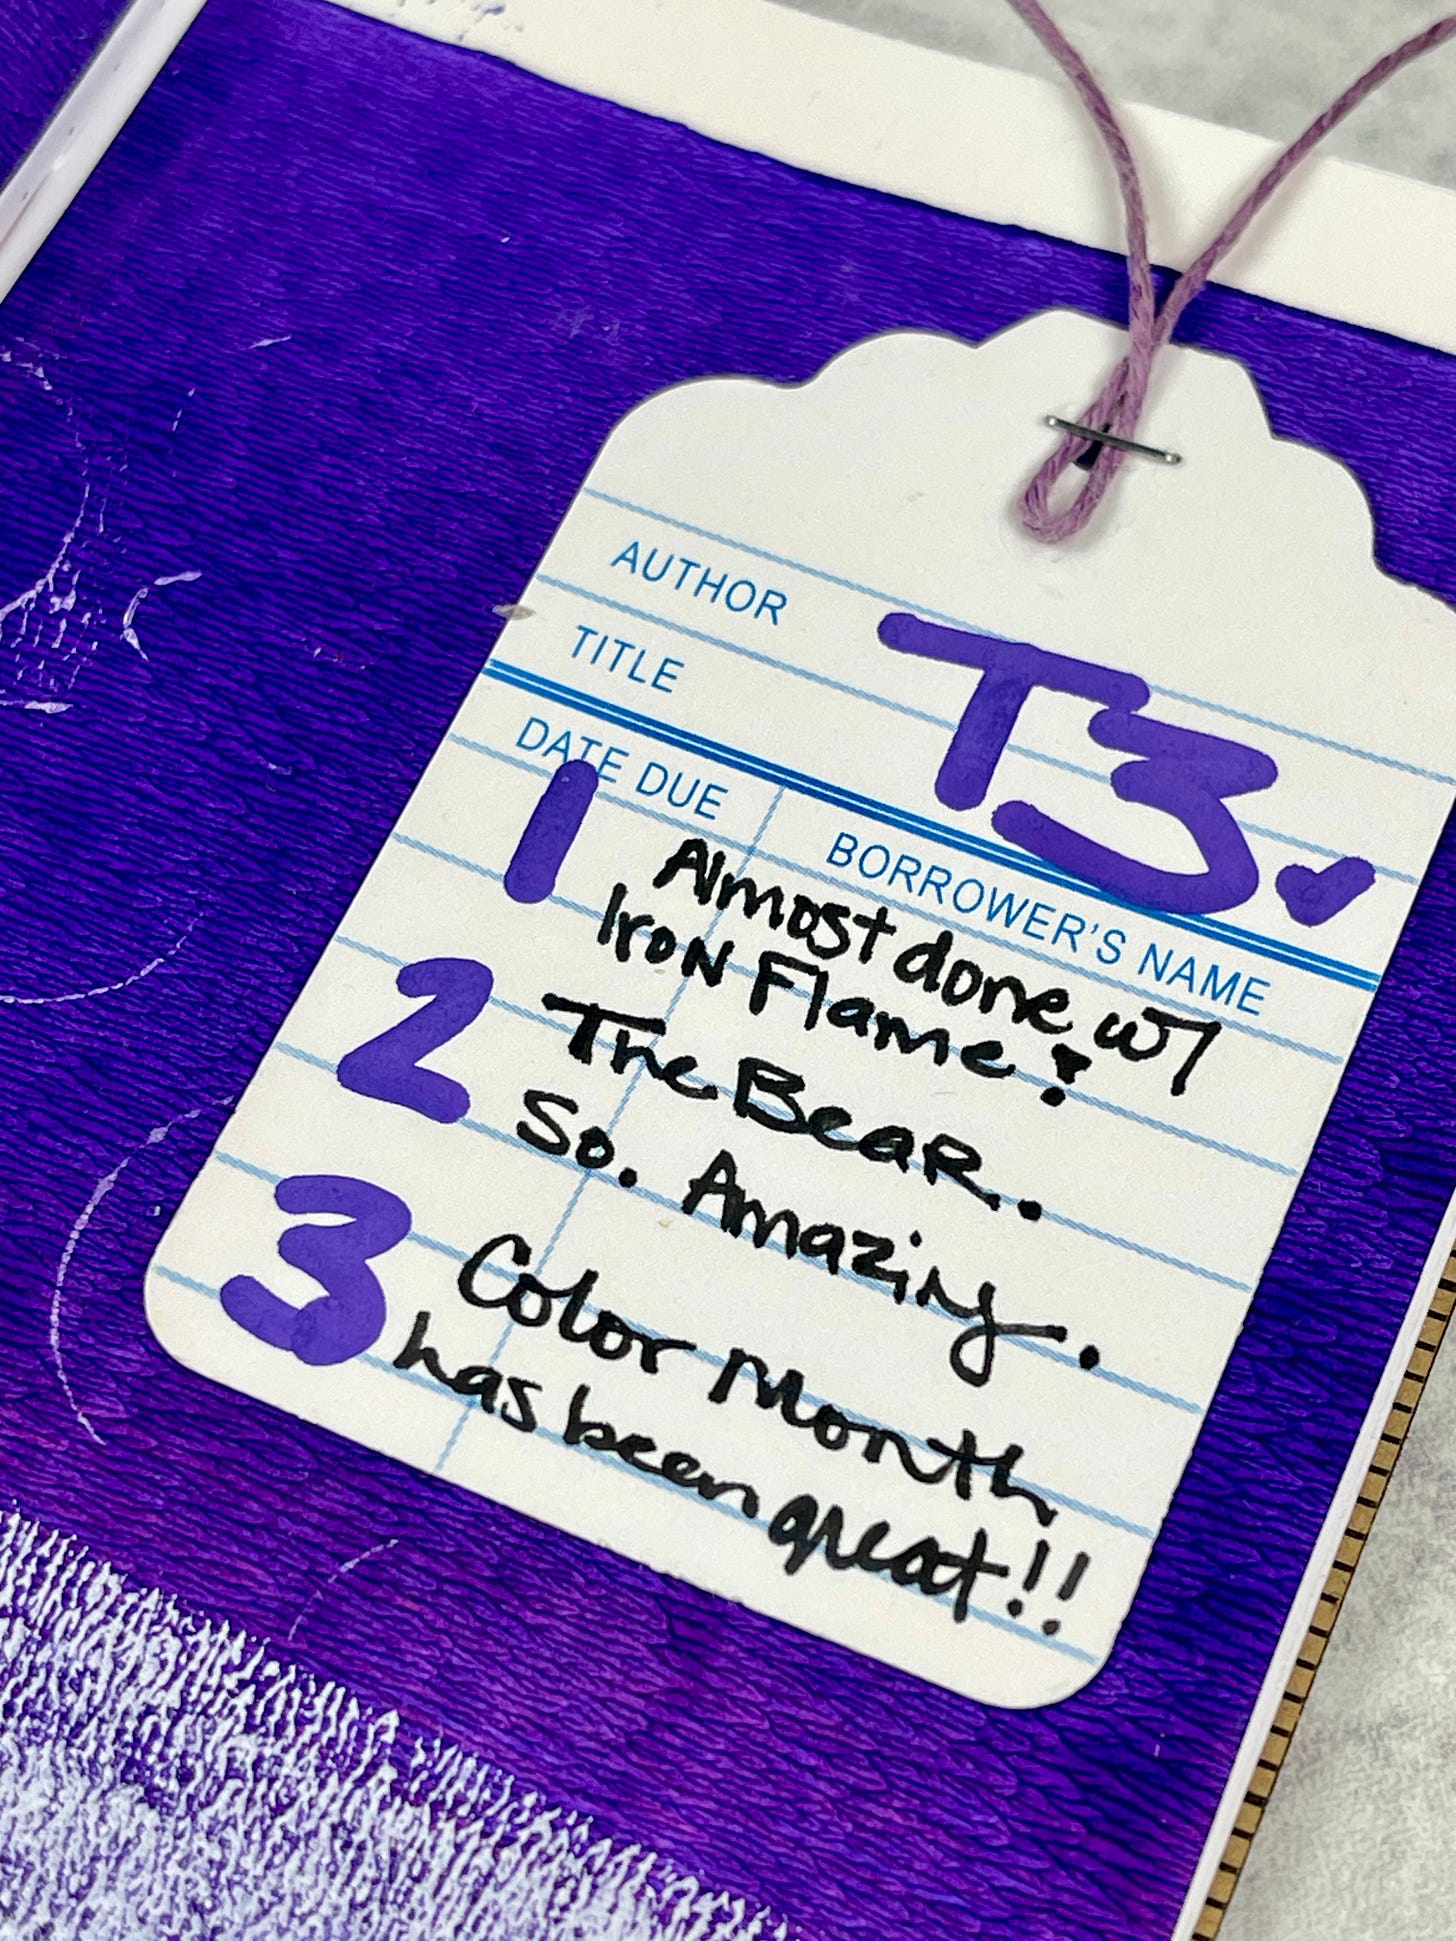 AUTHOR
TITLE
T3✓
DATE DUE
BORROWER'S NAME
1 Almost done w/
Iron Flame!
2 The Bear.
So. Amazing.
3 Color Month
has been great!!